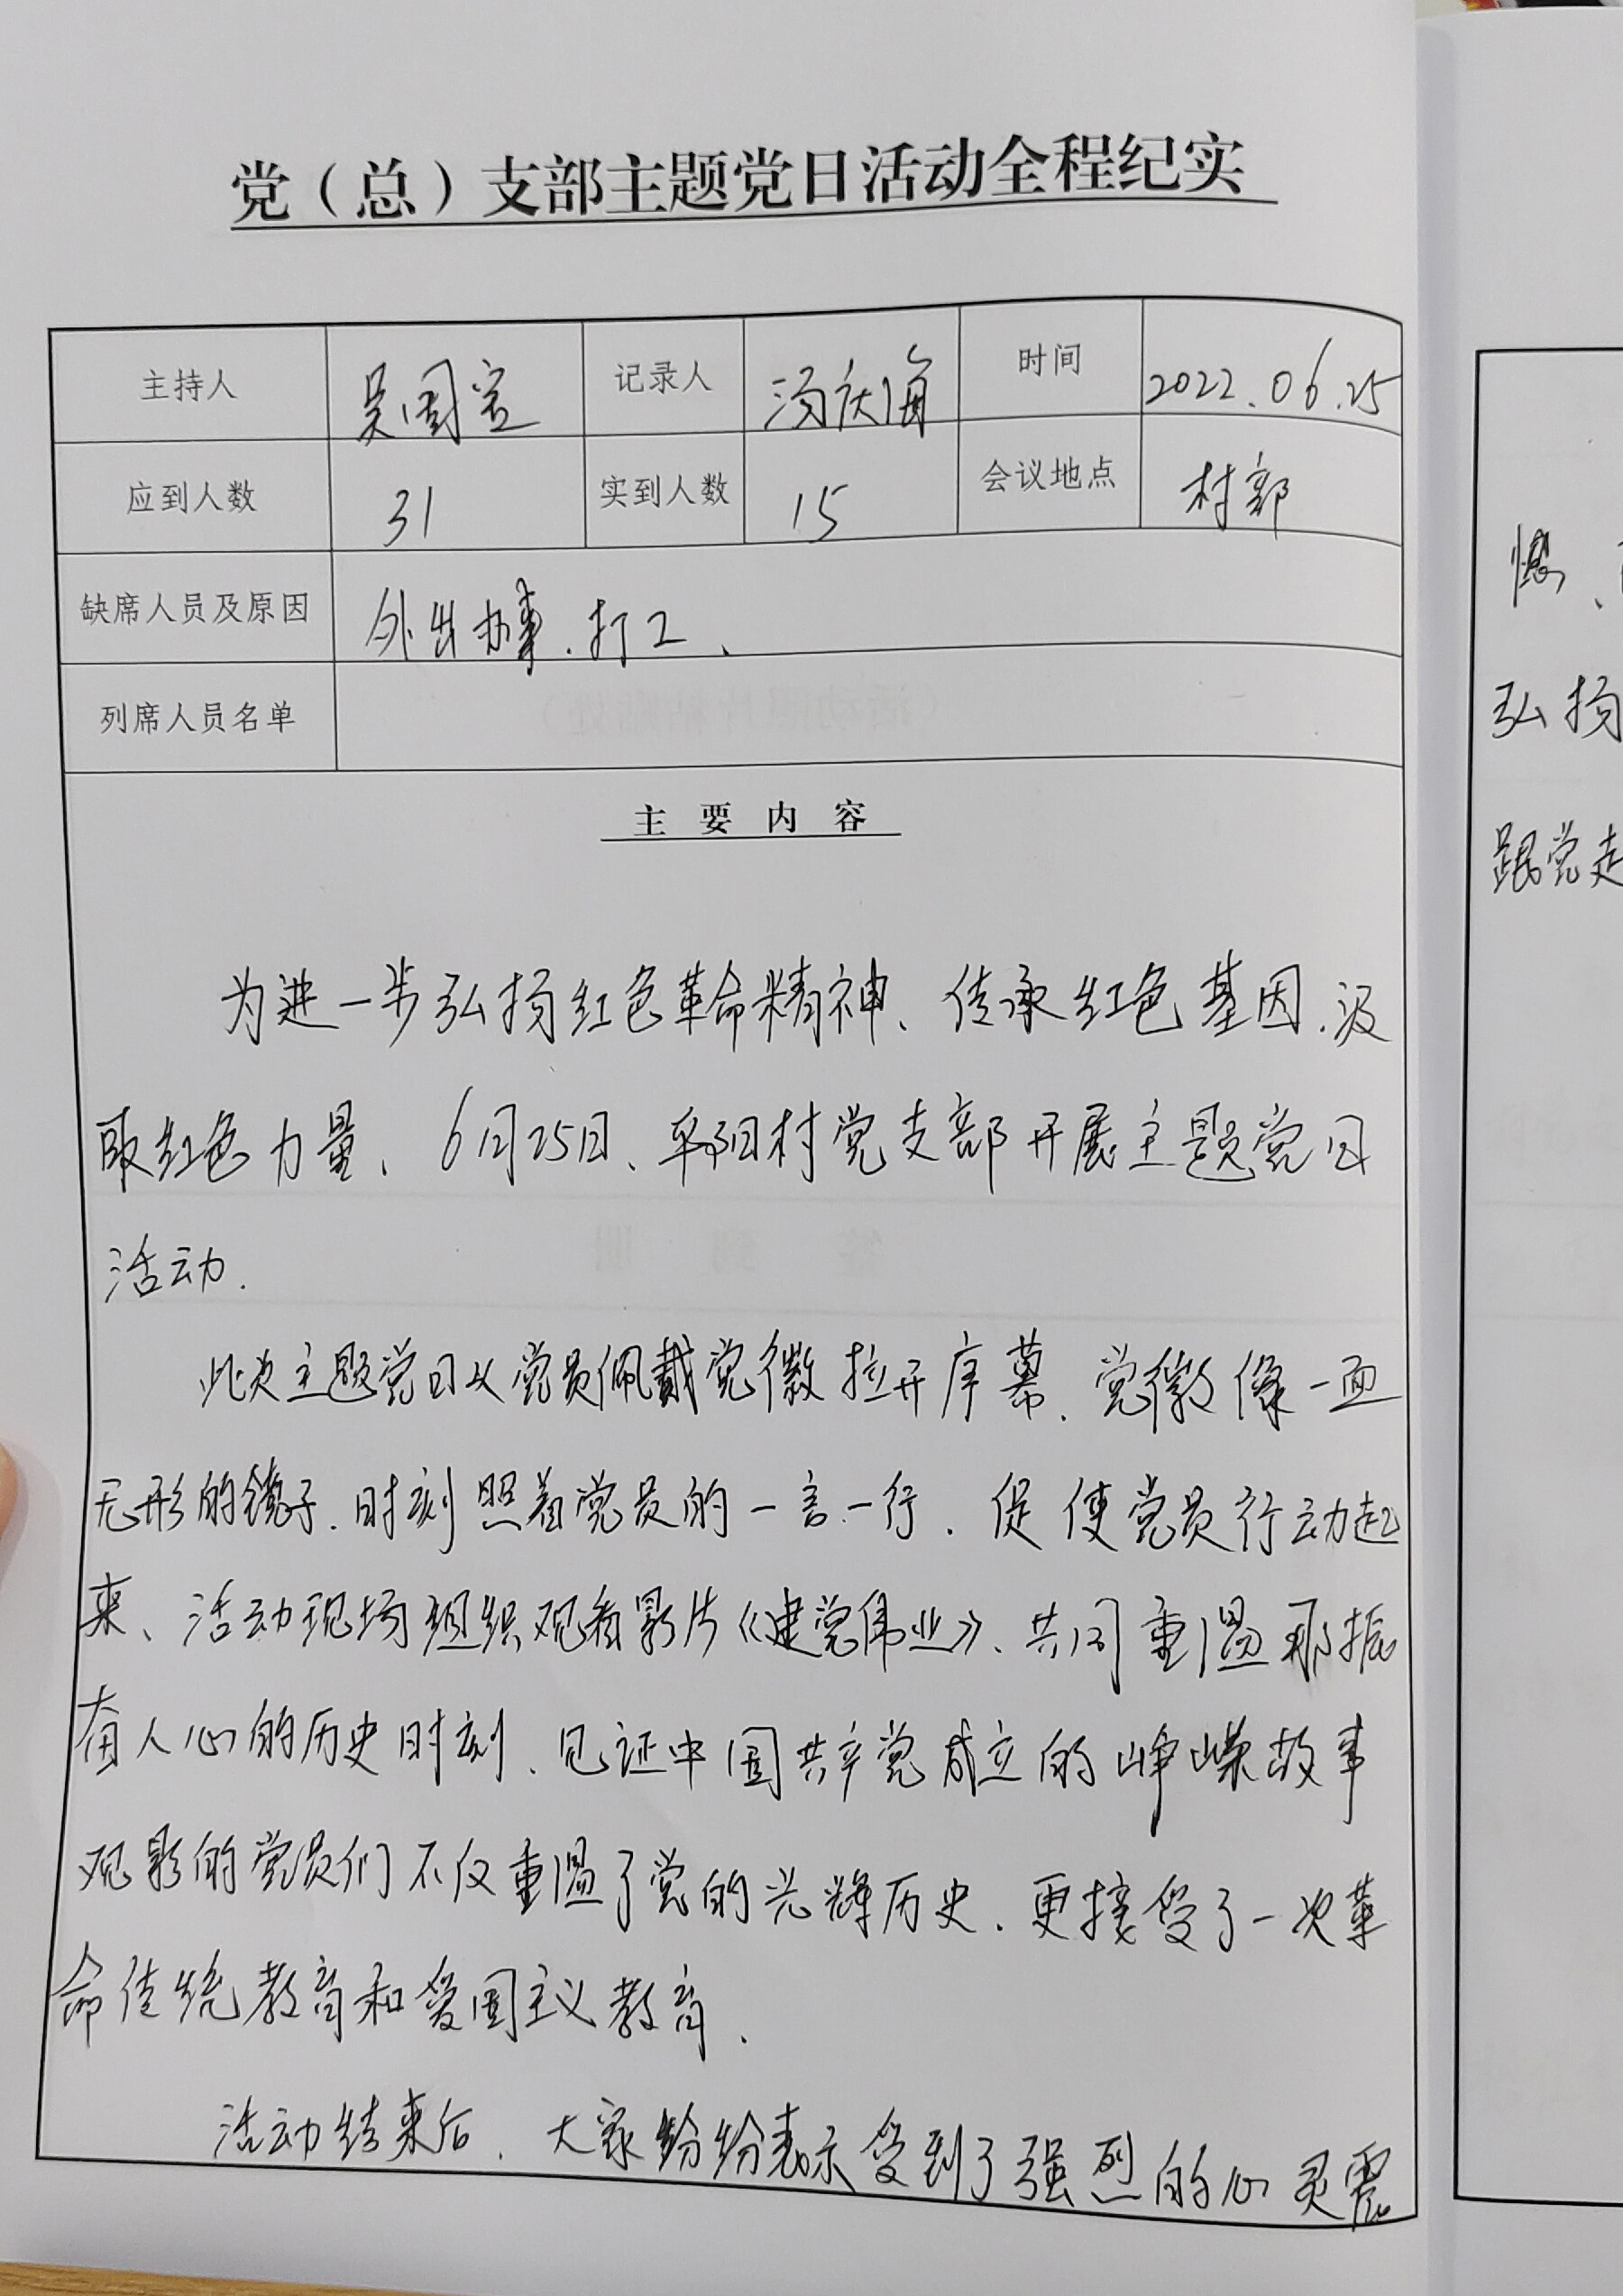 党（总）支部主题党日活动全程纪实
主持人 吴国宝 记录人 汤庆海 时间 2022.06.25
应到人数 31 实到人数 15 会议地点 村部
缺席人员及原因 外出办事、打工、
列席人员名单
主要内容
为进一步弘扬红色革命精神、传承红色基因、汲
取红色力量、6月25日、平阳村党支部开展主题党日
活动.
此次主题党日以党员佩戴党徽拉开序幕、党徽像一面
无形的镜子、时刻照着党员的一言一行、促使党员行动起
来、活动现场组织观看影片《建党伟业》、共同重温那振
奋人心的历史时刻、见证中国共产党成立的峥嵘故事
观影的党员们不仅重温了党的光辉历史、更接受了一次革
命传统教育和爱国主义教育、
活动结束后、大家纷纷表示受到了强烈的心灵震
憾、
弘扬
跟党走